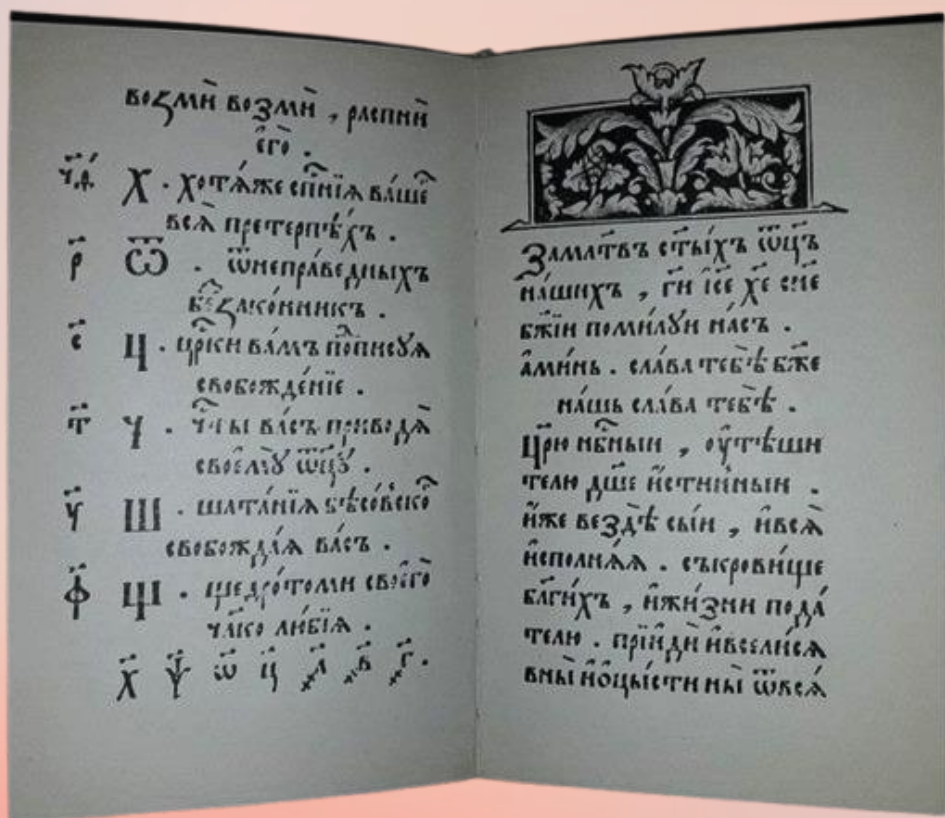 возмѝ возмѝ , распнѝ
є҆го̀ .
ч҃д Х . хотѧ́же сп҃нїѧ ва́шеⷢ҇
всѧ̀ претерпѣ́хъ .
р҃ Ѿ . ѿнепра́ведныхъ
беззако́нникъ .
с҃ Ц . цр҃ки ва́мъ по́писуѧ
свобожде́нїе .
т҃ Ч . чⷭ҇ты ва́съ приводѧ̀
своемꙋ̀ ѿц҃ꙋ̀ .
у҃ Ш . шата́нїѧ бѣсо́вскоⷢ҇
свобожда́ѧ ва́съ .
ф҃ Щ . щедро́томи своегѡ̀
чл҃ко лю́бїѧ .
х҃ ѱ҃ ѿ҃ ц҃ ҂а҃ ҂в҃ ҂г҃ .
Замл҃твъ ст҃ы́хъ ѿц҃ъ
на́шихъ , гⷭ҇и і҆с҃е хⷭ҇е сн҃е
бж҃іи поми́луи на́съ .
а҆ми́нь . сла́ва тебѣ̀ бж҃е
на́шь сла́ва тебѣ̀ .
Цр҃ю нбⷭ҇ныи , ѹ҆тѣ́ши
телю дш҃е и҆́стинныи .
и҆́же вездѣ̀ сы́и , и҆всѧ̀
и҆сполнѧ́ѧ . съкрови́ще
бл҃ги́хъ , и҆жи́зни пода́
телю . прїидѝ и҆всели́сѧ
вны̀ и҆ѡцы́сти ны̀ ѿвсѧ́